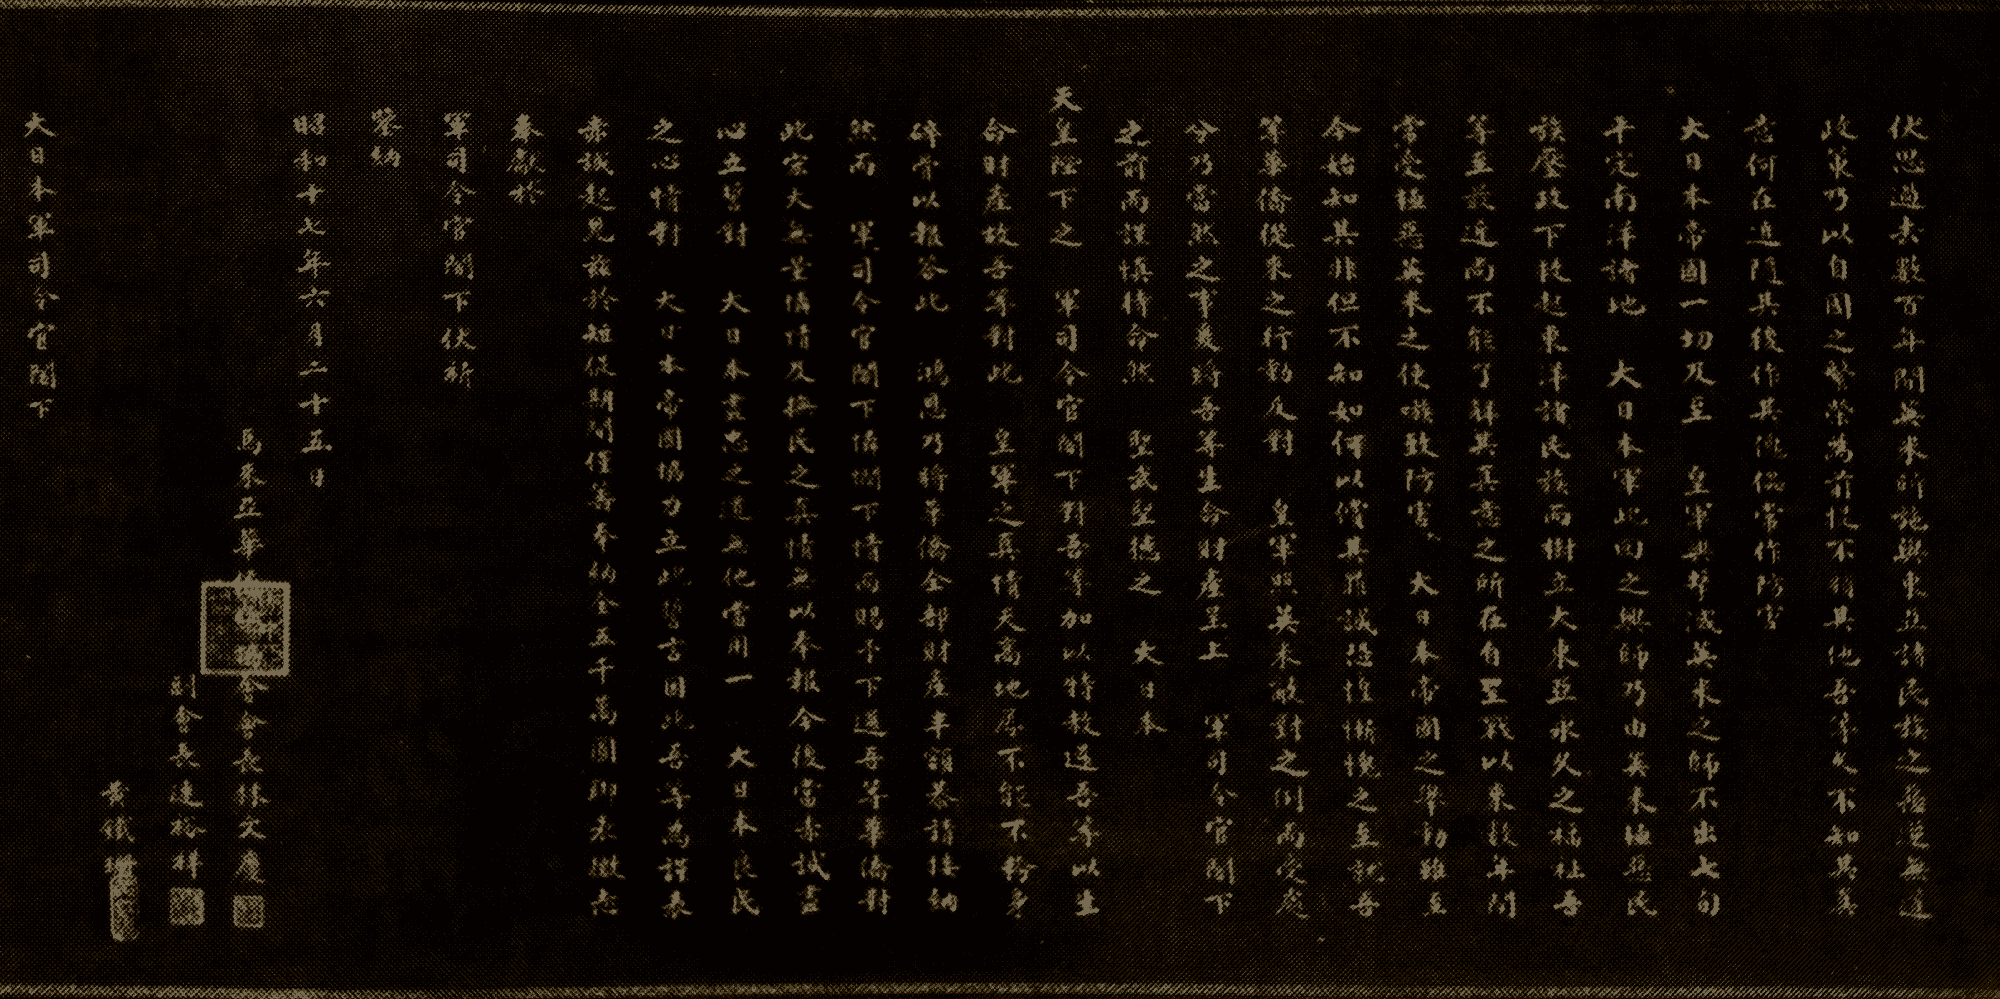 伏思過去數百年間英米所施與東亞諸民族之
政策乃以自國之繁榮為前提不翅其他吾等久不知其真
意何在追隨其後作其常作防害
大日本帝國一切及至　皇軍兵擊滅英米之師不出七旬
平定南洋諸地　大日本軍此回之興師乃由英米極惡民
族壓政下救起東洋諸民族而樹立大東亞永久之福祉吾
等至最近尚不能了解其真意之所在自聖戰以來數年間
常受極惡英米之使嗾致防害　大日本帝國之舉動雖至
今始知其非但不知如何以償其罪誠恐惶慚愧之至況吾
等華僑從來之行動反對　皇軍照英米敵對之例而受處
分乃當然之事爰將吾等生命財產呈上　軍司令官閣下
之前而謹慎待命然　聖武聖德之　大日本
天皇陛下之　軍司令官閣下對吾等加以特赦還吾等以生
命財產故吾等對此　皇軍之真情天高地厚不能不粉身
碎骨以報答此　鴻恩乃將華僑全部財產半額恭請接納
然而　軍司令官閣下憐憫下情而賜予下還吾等華僑對
此宏大無量憐情及撫民之真情無以奉報今後當赤誠盡
心立誓對　大日本盡忠之道無他當用一　大日本良民
之心情對　大日本帝國協力立此誓言因此吾等為謹表
赤誠起見茲於短促期間僅籌奉納金五千萬圓聊表微志
奉獻於
軍司令官閣下伏祈
鑒納
昭和十七年六月二十五日
馬來亞華僑協會會長林文慶
副會長連裕祥
黃鐵珊
大日本軍司令官閣下